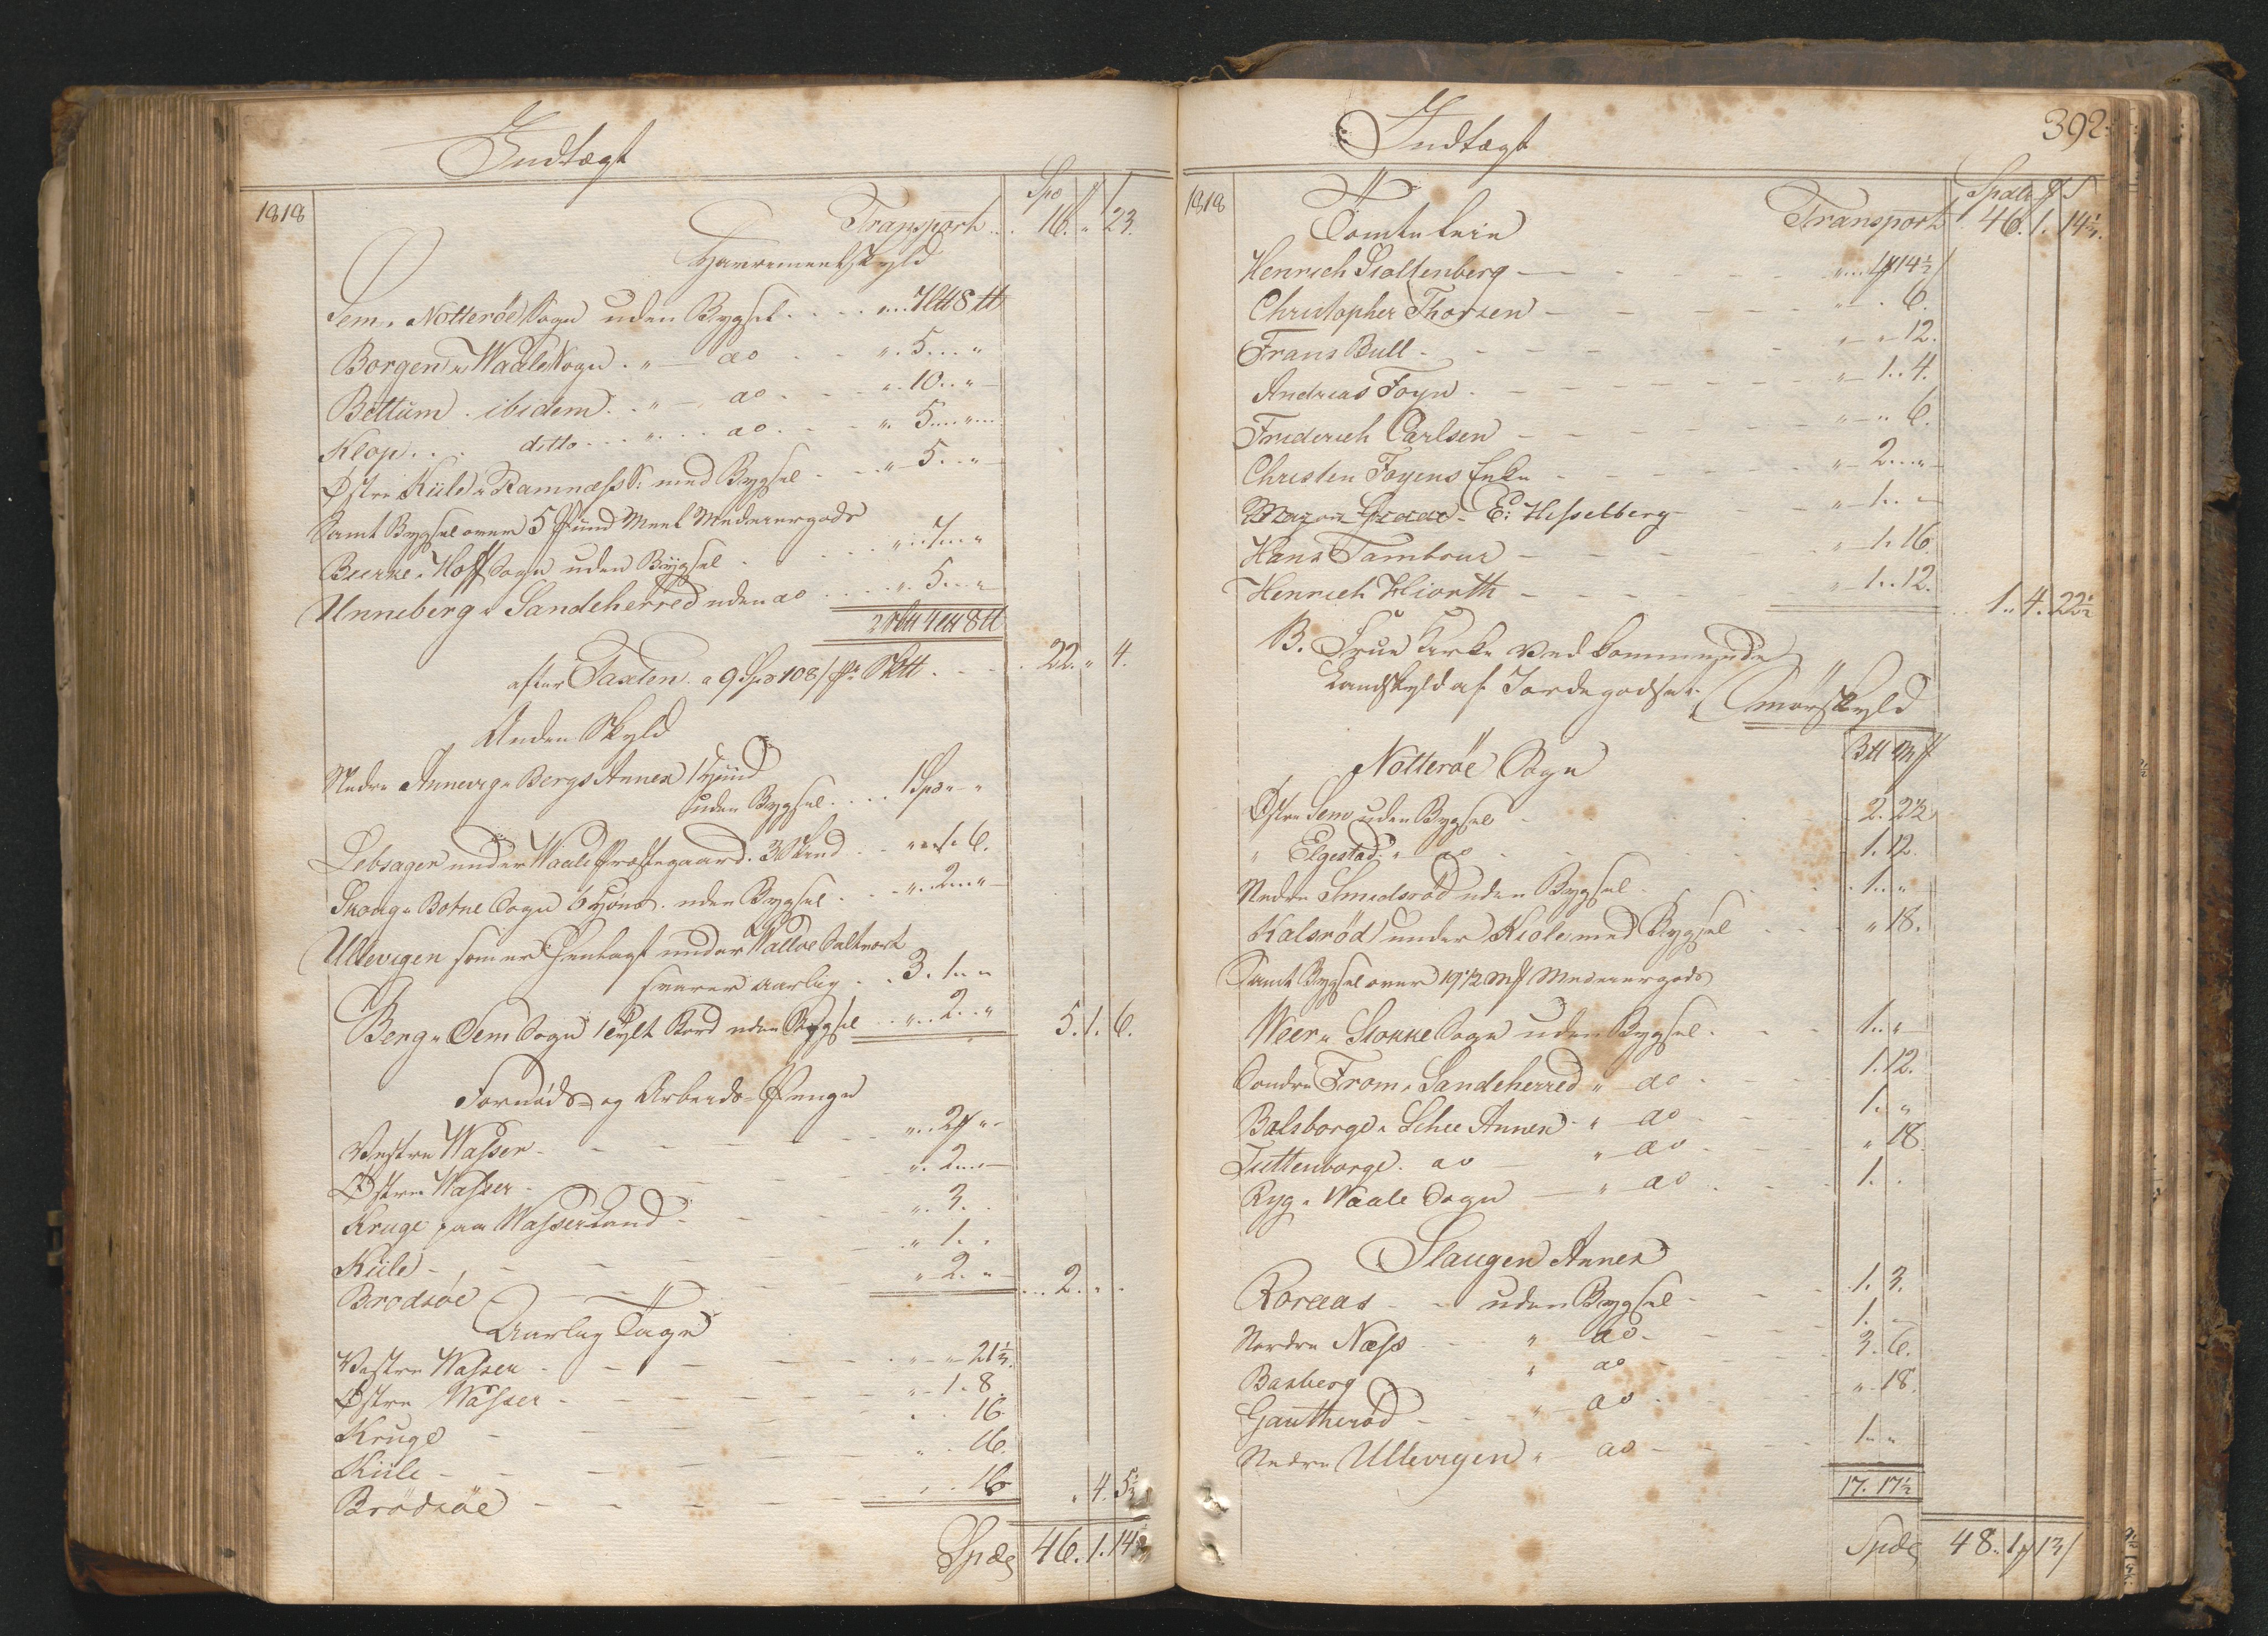 Indtægt
1818
Spd
Transport . . 16. " 23.
Havremeelskyld
Sem i Nøtterøe Sogn uden Bygsel . . . .
Borgen i Waale Sogn . " do . . " . 5 . . . "
Bettum . ibidem . . " do . . " . 10 . . "
Klop . . . ditto . . . " . . do . . " . 5 . . . "
Østre Kiile i Ramnæss S: med Bygsel . . . " 5 . . "
Samt Bygsel over 5 Pund Meel Medeiergods
Buerne i Hoff Sogn uden Bygsel . . . . " . 7 . . "
Unneberg i Sandeherred uden do . . . . " . 5 . . "
efter Taxten a 9 Spd 108 s pr . . . 22. " 4.
Anden Skyld
Nedre Annevig i Bergs Annex 1 Huud
uden Bygsel . . . . 1 Spd " "
Lebsager under Waale Præstegaard . 3 Skind . . " . 1. 6.
Skoug i Botne Sogn 6 Høns . uden Bygsel . . " . 2 . . "
Ullevigen som er henlagt under Walløe Saltværk
svarer aarlig . . 3. 1. "
Berg i Sem Sogn 1 Tylt Bord uden Bygsel . . " . 2 . . " 5. 1. 6.
Fornøds- og Arbeids-Penge
Vestre Wasser - - - - " . 2 " "
Østre Wasser - - - - " . 2 . . "
Kruge paa Wasserland - - - " . 3 .
Kiile - - - - - " 1. .
Brodsøe - - - - " 2. " . . . 2. " .
Aarlig Tage
Vestre Wasser - - - - " " 21½.
Østre Wasser - - - - " 1. 8.
Kruge - - - - " . 16.
Kiile - - - - " . 16.
Brödsöe - - - - " . 16 " 4. 5½
Spd 46. 1. 14½
392.
Indtægt
1818
Spdlr
Transport 46. 1. 14½.
Tomteleie
Henrich Stoltenberg - - - - " . . 1 14½
Christopher Thorsen - - - - " . 6.
Frans Bull - - - - " " 12.
Andreas Foyn - - - - " 1. . 4.
Friderich Carlsen - - - - " " 6.
Christen Foyens Enke - - - " 2 . . "
E: Hesselberg - - - " 1. . "
Hans Tambour - - - . " 1. 16.
Henrich Hiorth - - - - " 1. . 12. 1. . 4. 22½
B. Frue Kirke vedkommende
Landskyld af Jordegodset. Smørskyld
Nøtterøe Sogn
Østre Sem uden Bygsel . . . 2. 2½
" Elgestad " do . . . 1. 12.
Nedre Smidsrød uden Bygsel . . . 1. . "
Kalsrød under Kiøle, med Bygsel . . . " 18.
Samt Bygsel over 19½ Medeiergods
Weer i Stokke Sogn uden Bygsel . . . 1. . "
Søndre From i Sandeherred " do . . . 1. 12.
Bolsborge i Schee Annex " do . . . 1. "
Tuttenborge . do - " do . . . " 18.
Ryg i Waale Sogn - " do . . . 1. .
Slaugen Annex
Roraas - - uden Bygsel - - - 1. 3.
Nordre Næss - - " do - - - 1. "
Basberg - - " do - - - 3. 6.
Gauterød - - " do - - - " 18.
Nedre Ullevigen " do - - - 1. "
17. 17½
Spd 48. 1 13